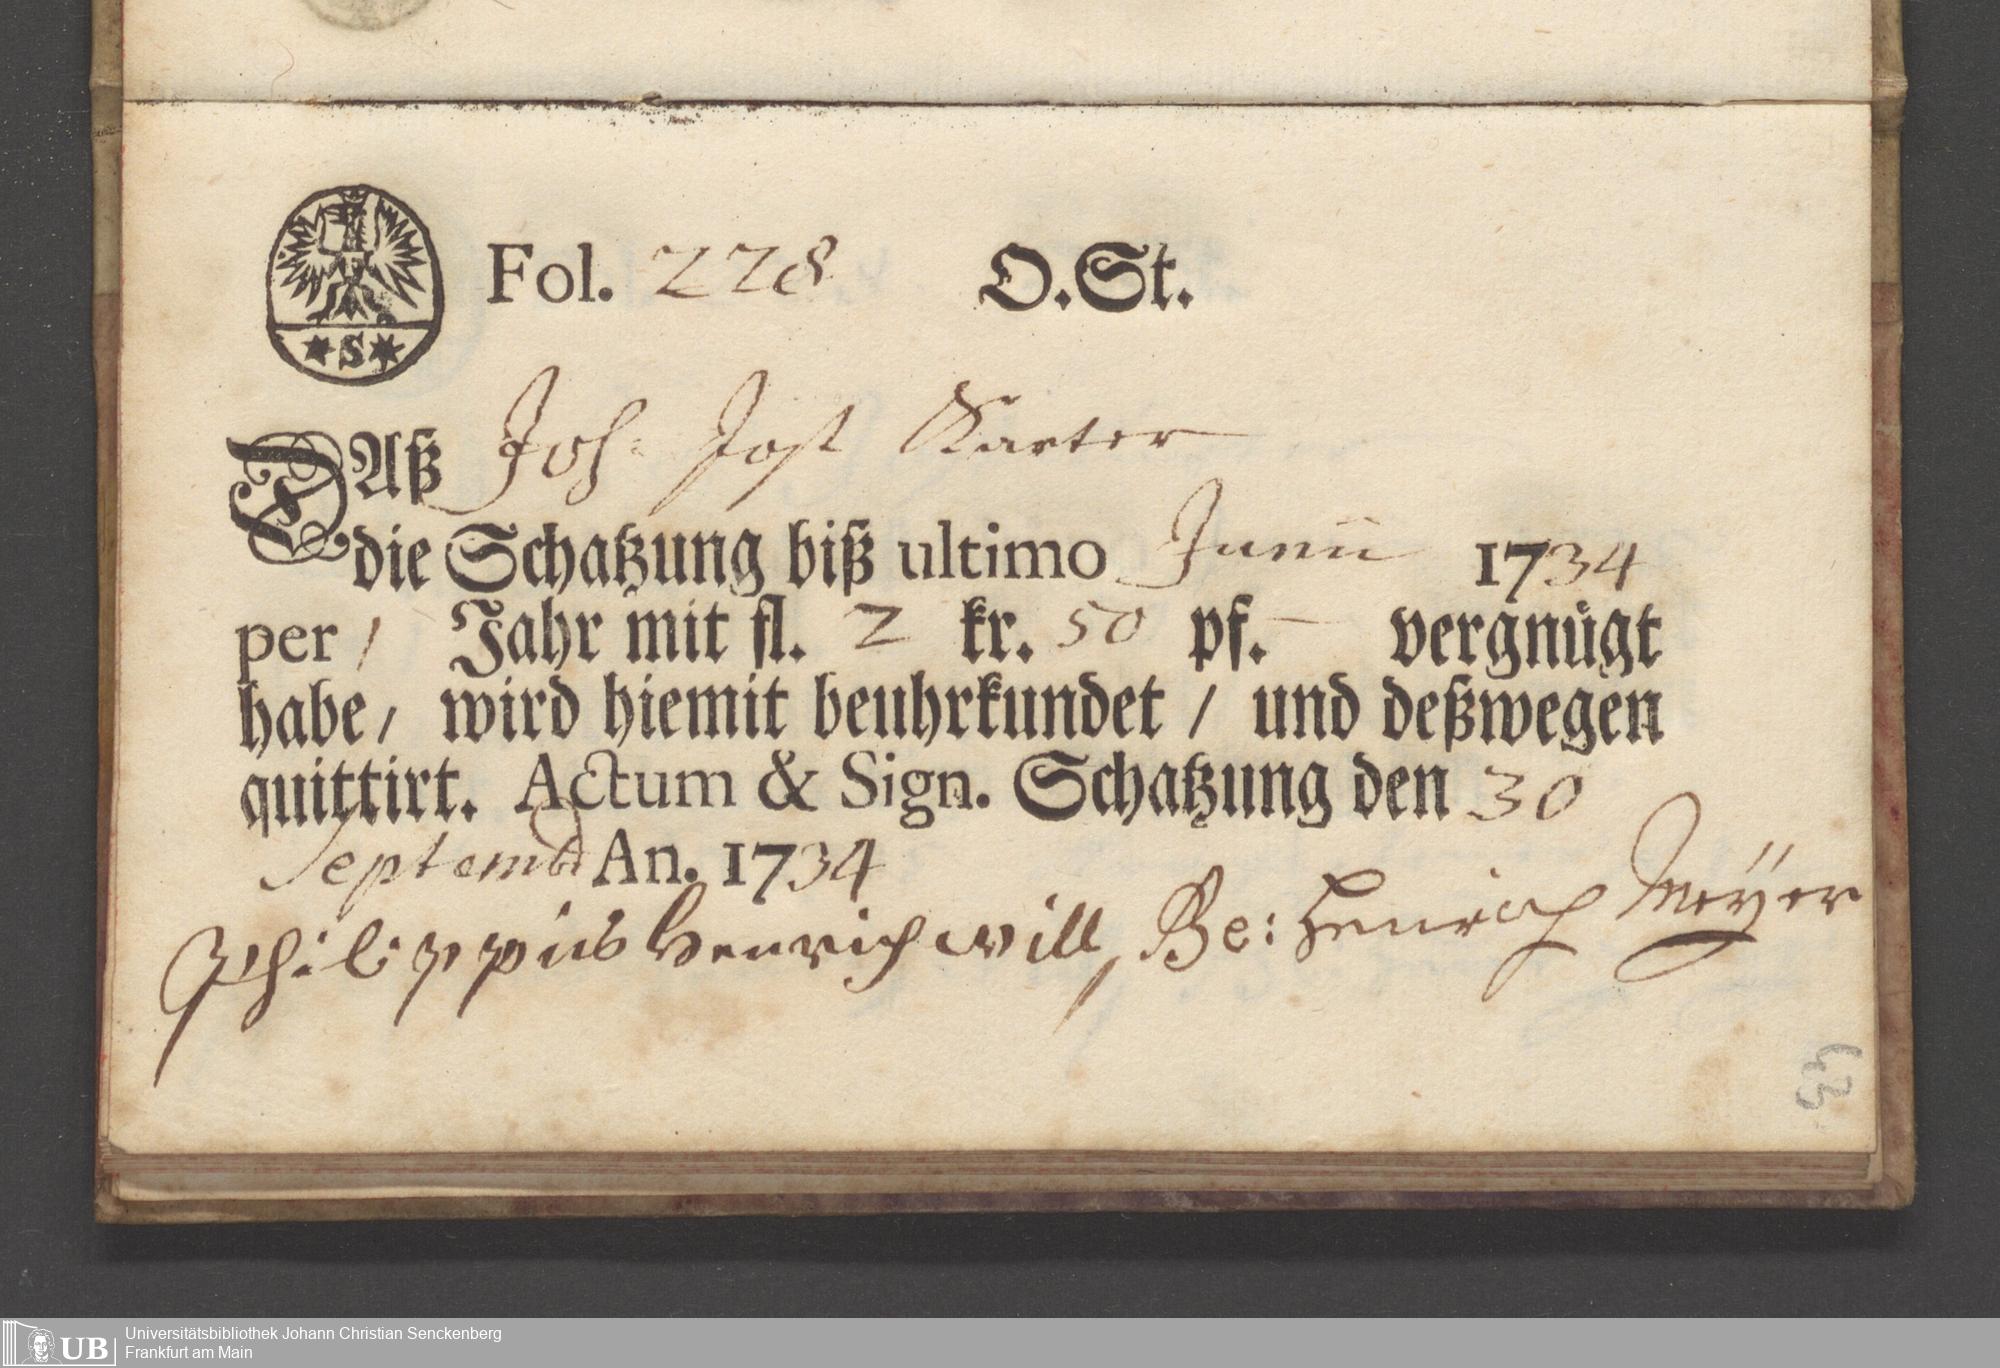 Fol. 228 O.St.
*S*
Daß Joh: Jost Karter
die Schatzung biß ultimo Junii 1734
per 1 Jahr mit fl. 2 kr. 50 pf. – vergnügt
habe, wird hiemit beuhrkundet / und deßwegen
quittirt. Actum & Sign. Schatzung den 30
Septemb An. 1734
Philippus Henrich Will, Be: Henrich Meÿer
33
UB Universitätsbibliothek Johann Christian Senckenberg
Frankfurt am Main